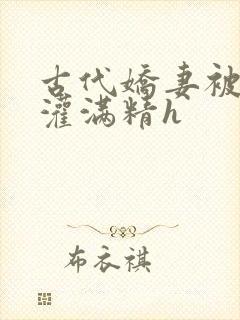 古代娇妻被
灌满精h
布衣祺